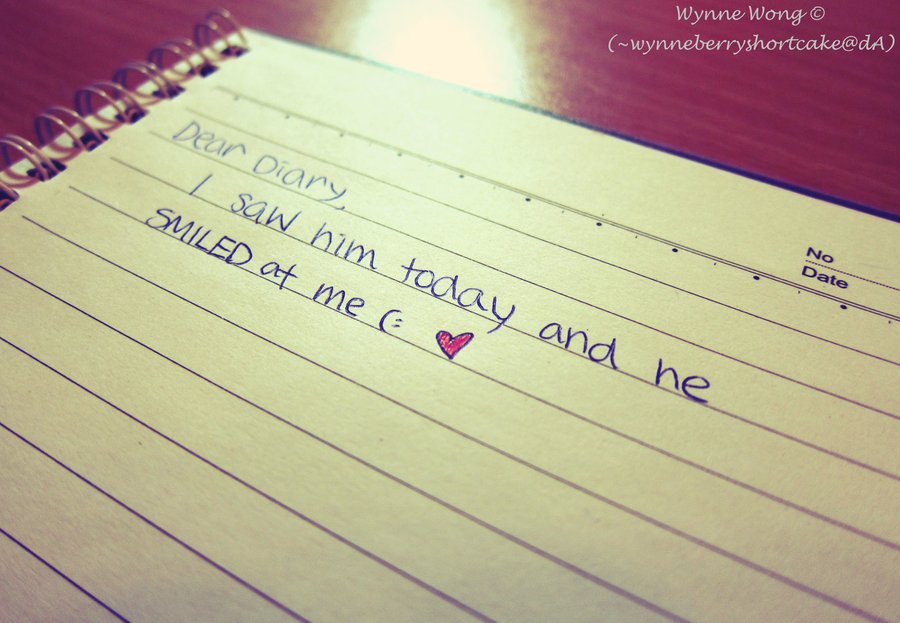 Wynne Wong ©
(~wynneberryshortcake@dA)
No
Date
Dear Diary,
I saw him today and he
SMILED at me (: ♥